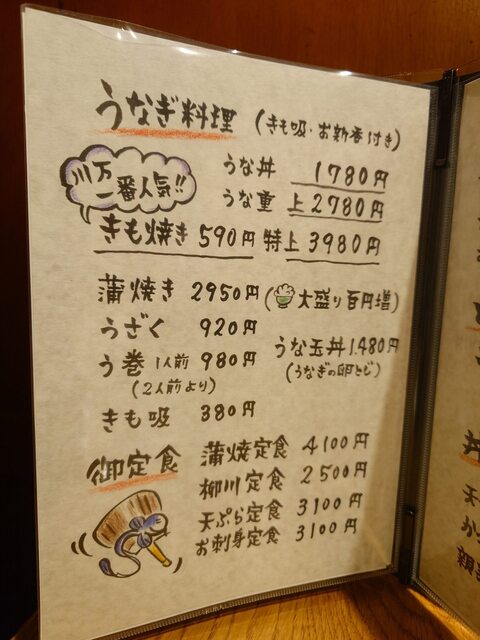 うなぎ料理 (きも吸・お新香付き)
川万
一番人気!!
うな丼 1780円
うな重 上2780円
きも焼き 590円 特上 3980円
蒲焼き 2950円 (大盛り百円増)
うざく 920円
う巻 1人前 980円 うな玉丼 1.480円
(2人前より) (うなぎの卵とじ)
きも吸 380円
御定食
蒲焼定食 4100円
柳川定食 2500円
天ぷら定食 3100円
お刺身定食 3100円
丼
天
か
親